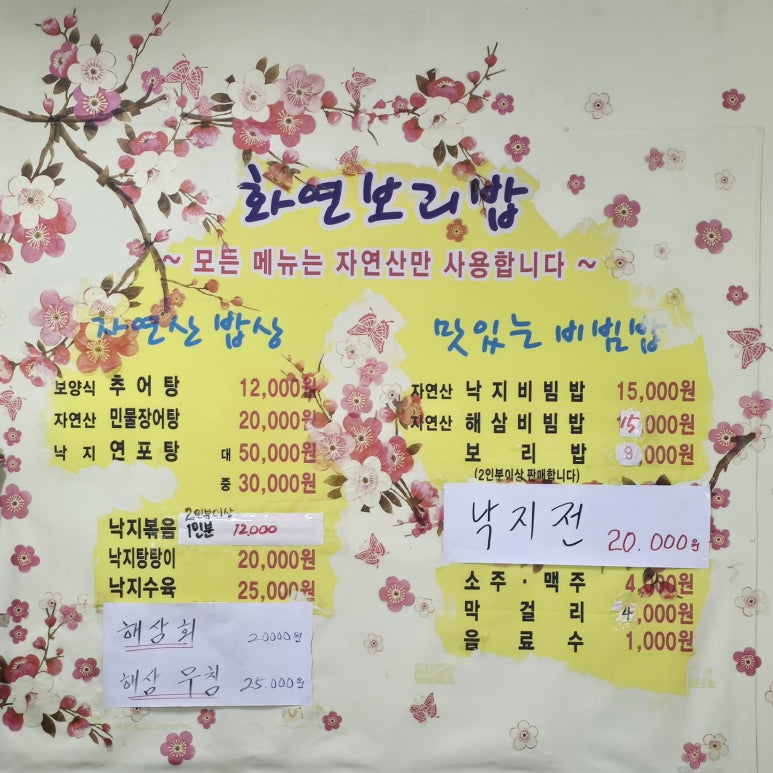 화연보리밥
~ 모든 메뉴는 자연산만 사용합니다 ~
자연산 밥상
보양식 추어탕 12,000원
자연산 민물장어탕 20,000원
낙지 연포탕 대 50,000원
중 30,000원
2인분이상
낙지볶음 1인분 12,000
낙지탕탕이 20,000원
낙지수육 25,000원
해삼회 20000원
해삼 무침 25.000원
맛있는 비빔밥
자연산 낙지비빔밥 15,000원
자연산 해삼비빔밥 15,000원
보리밥 8,000원
(2인분이상 판매합니다)
낙지전 20.000원
소주·맥주 4,000원
막걸리 4,000원
음료수 1,000원